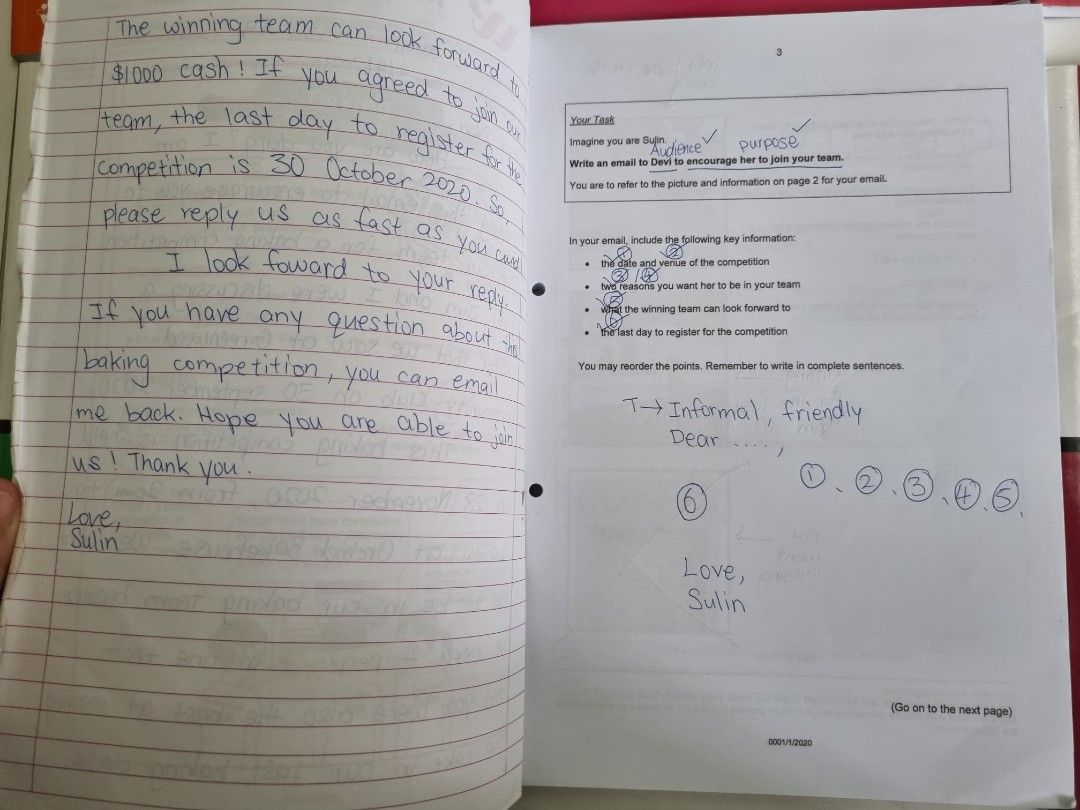 The winning team can look forward to
$1000 cash! If you agreed to join our
team, the last day to register for the
competition is 30 October 2020. So,
please reply us as fast as you could
I look foward to your reply.
If you have any question about the
baking competition, you can email
me back. Hope you are able to join
us! Thank you.
Love,
Sulin
3
Your Task
Imagine you are Sulin.
Audience ✓ purpose ✓
Write an email to Devi to encourage her to join your team.
You are to refer to the picture and information on page 2 for your email.
In your email, include the following key information:
① ②
• the date and venue of the competition
③ / ④
• two reasons you want her to be in your team
⑤
• what the winning team can look forward to
⑥
• the last day to register for the competition
You may reorder the points. Remember to write in complete sentences.
T→ Informal, friendly
Dear ....,
①, ②, ③, ④, ⑤,
⑥
Love,
Sulin
(Go on to the next page)
0001/1/2020